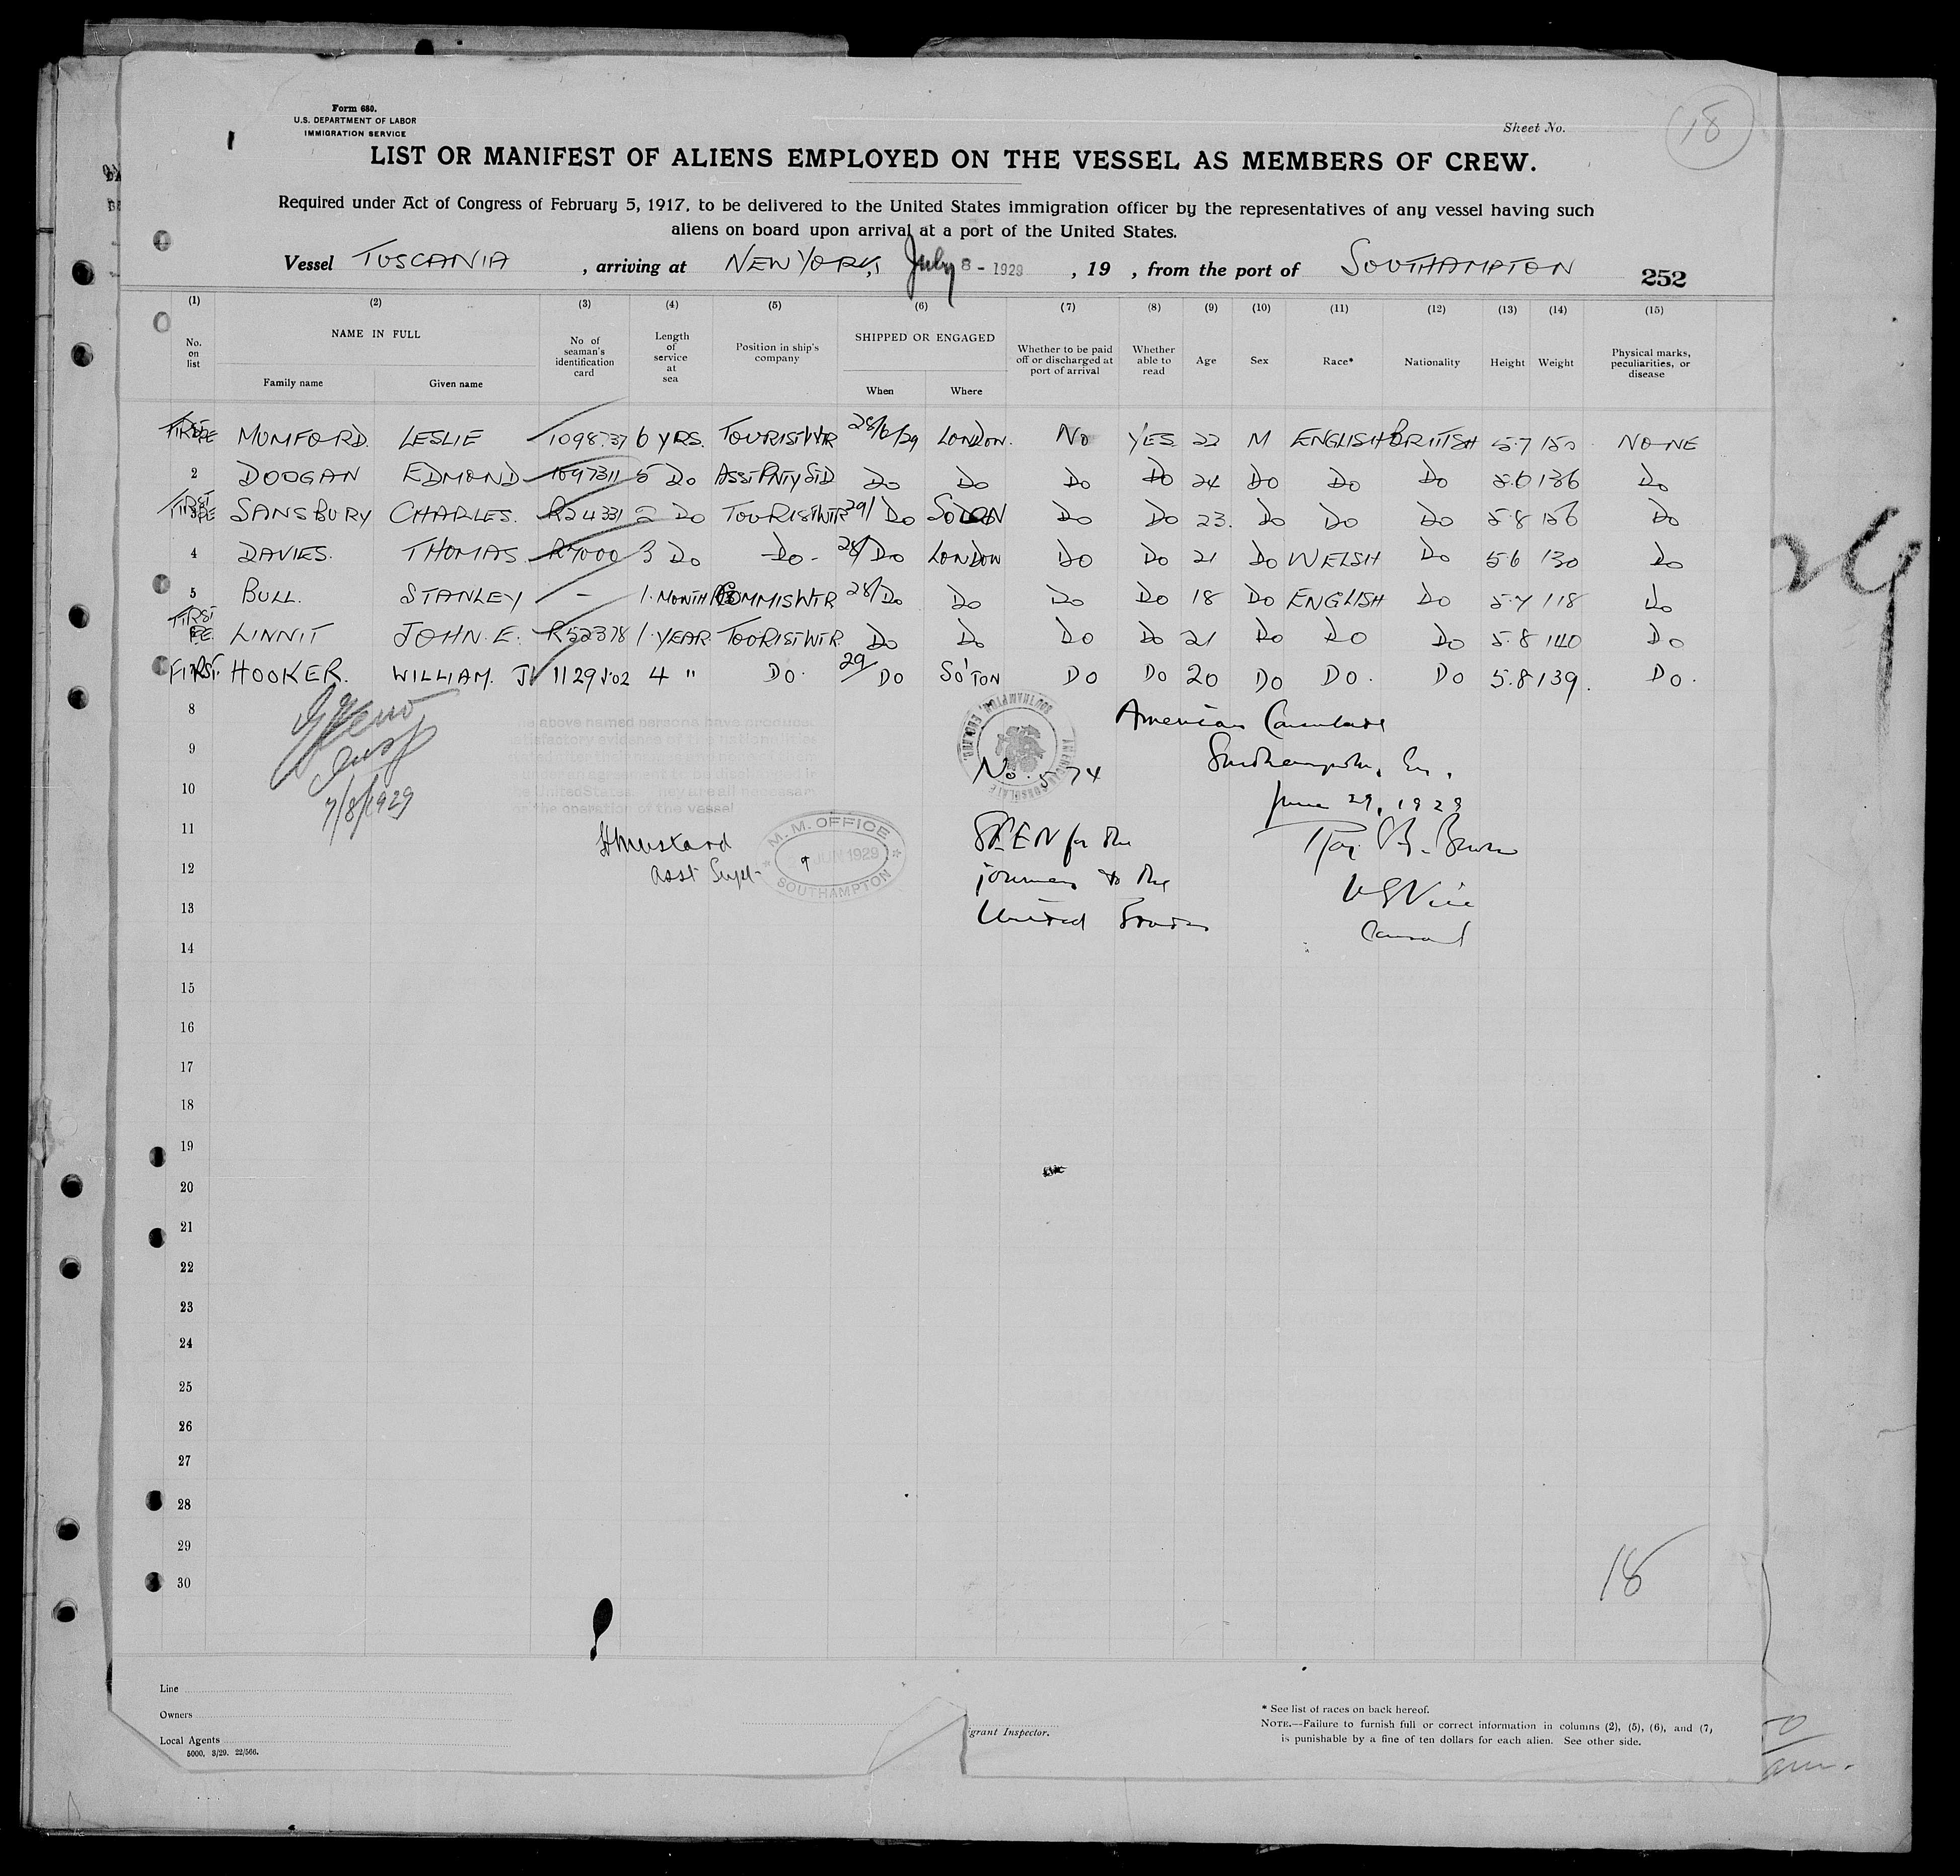 Form 680.
U.S. DEPARTMENT OF LABOR
IMMIGRATION SERVICE
Sheet No. 18
LIST OR MANIFEST OF ALIENS EMPLOYED ON THE VESSEL AS MEMBERS OF CREW.
Required under Act of Congress of February 5, 1917, to be delivered to the United States immigration officer by the representatives of any vessel having such
aliens on board upon arrival at a port of the United States.
Vessel TUSCANIA , arriving at NEW YORK, July 8 - 1929 , 19 , from the port of SOUTHAMPTON 252
(1) (2) (3) (4) (5) (6) (7) (8) (9) (10) (11) (12) (13) (14) (15)
No. on list NAME IN FULL Family name Given name No of seaman's identification card Length of service at sea Position in ship's company SHIPPED OR ENGAGED When Where Whether to be paid off or discharged at port of arrival Whether able to read Age Sex Race* Nationality Height Weight Physical marks, peculiarities, or disease
FIRST MUMFORD. LESLIE 1098737 6 YRS. TOURIST WTR 28/6/29 LONDON. No YES 22 M ENGLISH BRITISH 5.7 150 NONE
2 DOOGAN EDMOND 1097311 5 Do ASST PNTY STD Do Do Do Do 24 Do Do Do 5.6 136 Do
FIRST SANSBURY CHARLES. R24331 2 Do TOURIST WTR 29/ Do SOTON Do Do 23. Do Do Do 5.8 156 Do
4 DAVIES. THOMAS R7000 3 Do -Do- 28/ Do LONDON Do Do 21 Do WELSH Do 5 6 130 Do
5 BULL. STANLEY - 1. MONTH COMMIS WTR 28/ Do Do Do Do 18 Do ENGLISH Do 5.7 118 Do
FIRST LINNIT JOHN. E. R52378 1. YEAR TOURIST WTR. Do Do Do Do 21 Do Do Do 5.8 140 Do
FIRST. HOOKER. WILLIAM. J 1129502 4 " Do. 29/ Do SO'TON Do Do 20 Do Do. Do 5.8 139. Do.
8
9
10
11
12
13
14
15
16
17
18
19
20
21
22
23
24
25
26
27
28
29
30
Insp
7/8/1929
the above named persons have produced
satisfactory evidence of their nationalities
under an agreement to be discharged in
the United States. They are all necessary
for the operation of the vessel
H Mustard
Asst Supt
M. M. OFFICE
JUN 1929
SOUTHAMPTON
AMERICAN CONSULATE
SOUTHAMPTON, ENGLAND.
No. 574
SEEN for the
journey to the
United States
American Consulate
Southampton, En.
June 29, 1929
Roy B. Brown
US Vice
Consul
18
Line
Owners
Local Agents
5000. 3/29. 22/566.
igrant Inspector.
* See list of races on back hereof.
NOTE.—Failure to furnish full or correct information in columns (2), (5), (6), and (7)
is punishable by a fine of ten dollars for each alien. See other side.